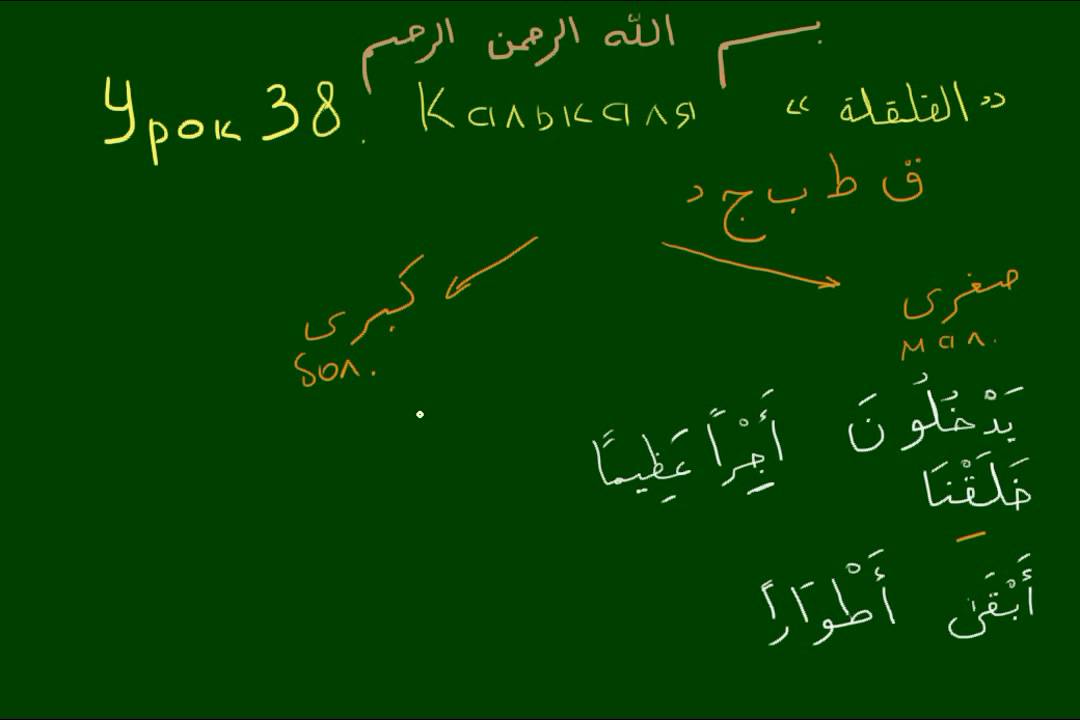 بسم الله الرحمن الرحيم
Урок 38. Калькаля «القلقلة»
ق ط ب ج د
صغرى
мал.
كبرى
бол.
يَدْخُلُونَ أَجْراً عَظِيمًا
خَلَقْنَا
أَبْقَىٰ أَطْوَاراً